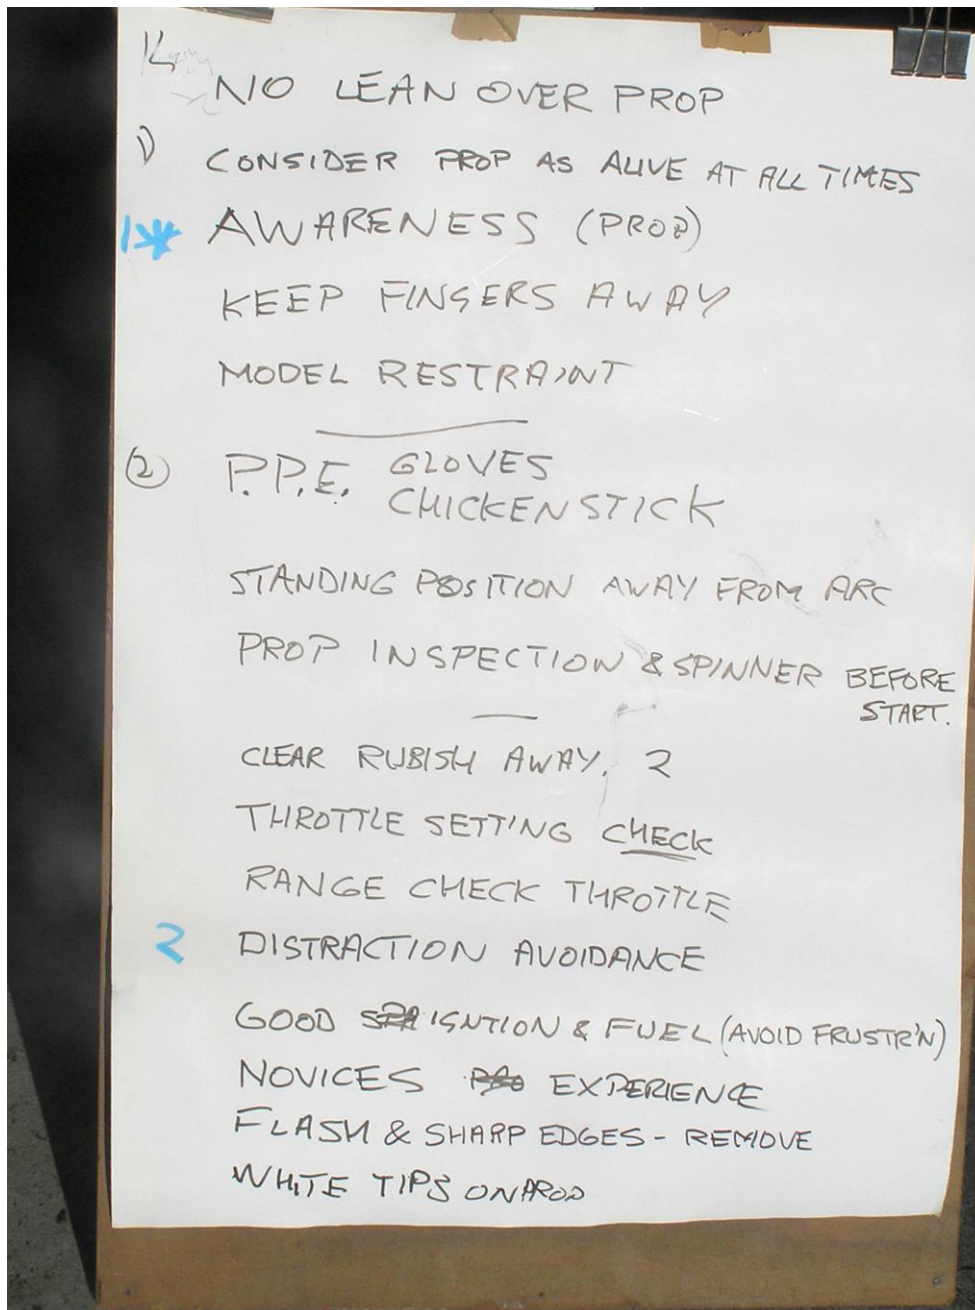 NO LEAN OVER PROP
1) CONSIDER PROP AS ALIVE AT ALL TIMES
1* AWARENESS (PROP)
KEEP FINGERS AWAY
MODEL RESTRAINT
2 P.P.E. GLOVES
CHICKEN STICK
STANDING POSITION AWAY FROM ARC
PROP INSPECTION & SPINNER BEFORE
START.
CLEAR RUBISH AWAY. 2
THROTTLE SETTING CHECK
RANGE CHECK THROTTLE
2 DISTRACTION AVOIDANCE
GOOD IGNTION & FUEL (AVOID FRUSTR'N)
NOVICES EXPERIENCE
FLASH & SHARP EDGES - REMOVE
WHITE TIPS ON PROP